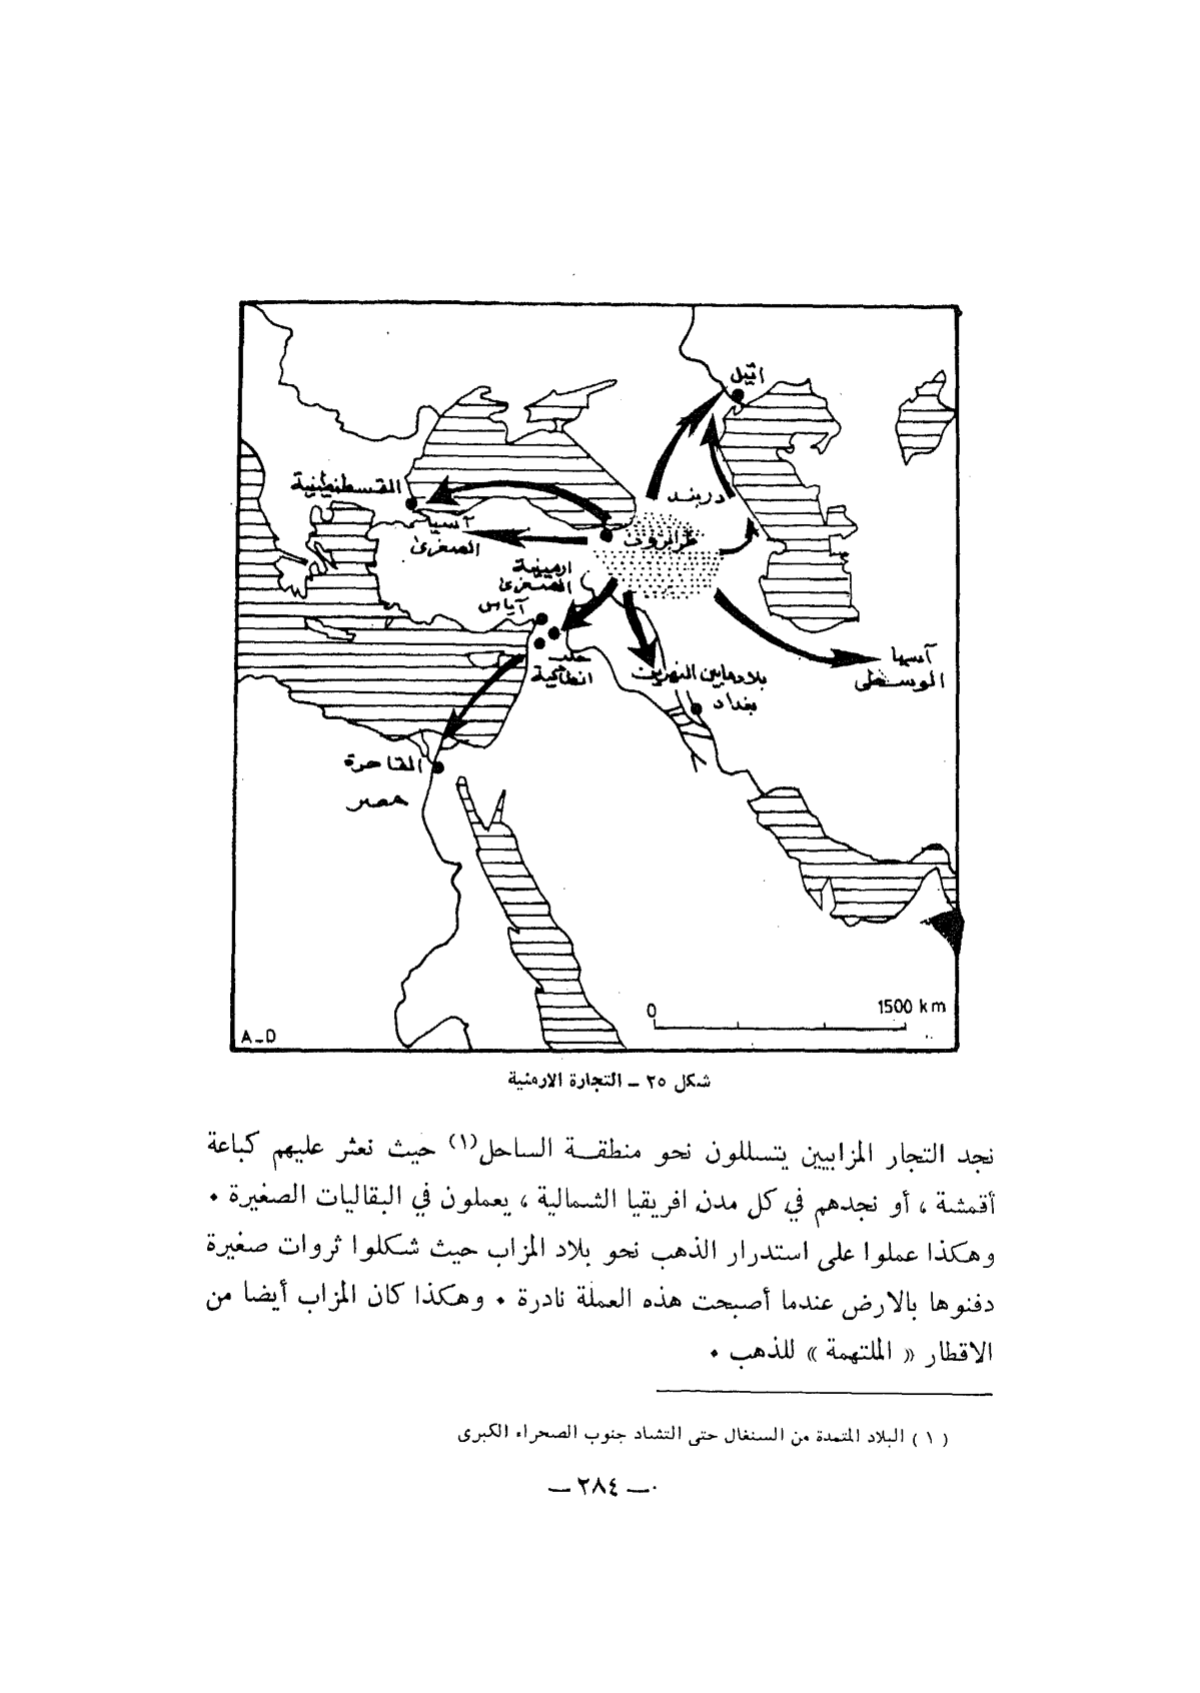 اتيل
القسطنطينية
دربند
آسيا
الصغرى
طرابزون
ارمينية
الصغرى
آياس
حلب
انطاكية
آسيا
الوسطى
بلاد مابين النهرين
بغداد
القاهرة
مصر
0
1500 km
A-D
شكل ٢٥ - التجارة الارمنية
نجد التجار المزابيين يتسللون نحو منطقة الساحل(١) حيث نعثر عليهم كباعة
أقمشة ، أو نجدهم في كل مدن افريقيا الشمالية ، يعملون في البقاليات الصغيرة .
وهكذا عملوا على استدرار الذهب نحو بلاد المزاب حيث شكلوا ثروات صغيرة
دفنوها بالارض عندما أصبحت هذه العملة نادرة . وهكذا كان المزاب أيضا من
الاقطار « الملتهمة » للذهب .
( ١ ) البلاد المتمدة من السنغال حتى التشاد جنوب الصحراء الكبرى
— ٢٨٤ —